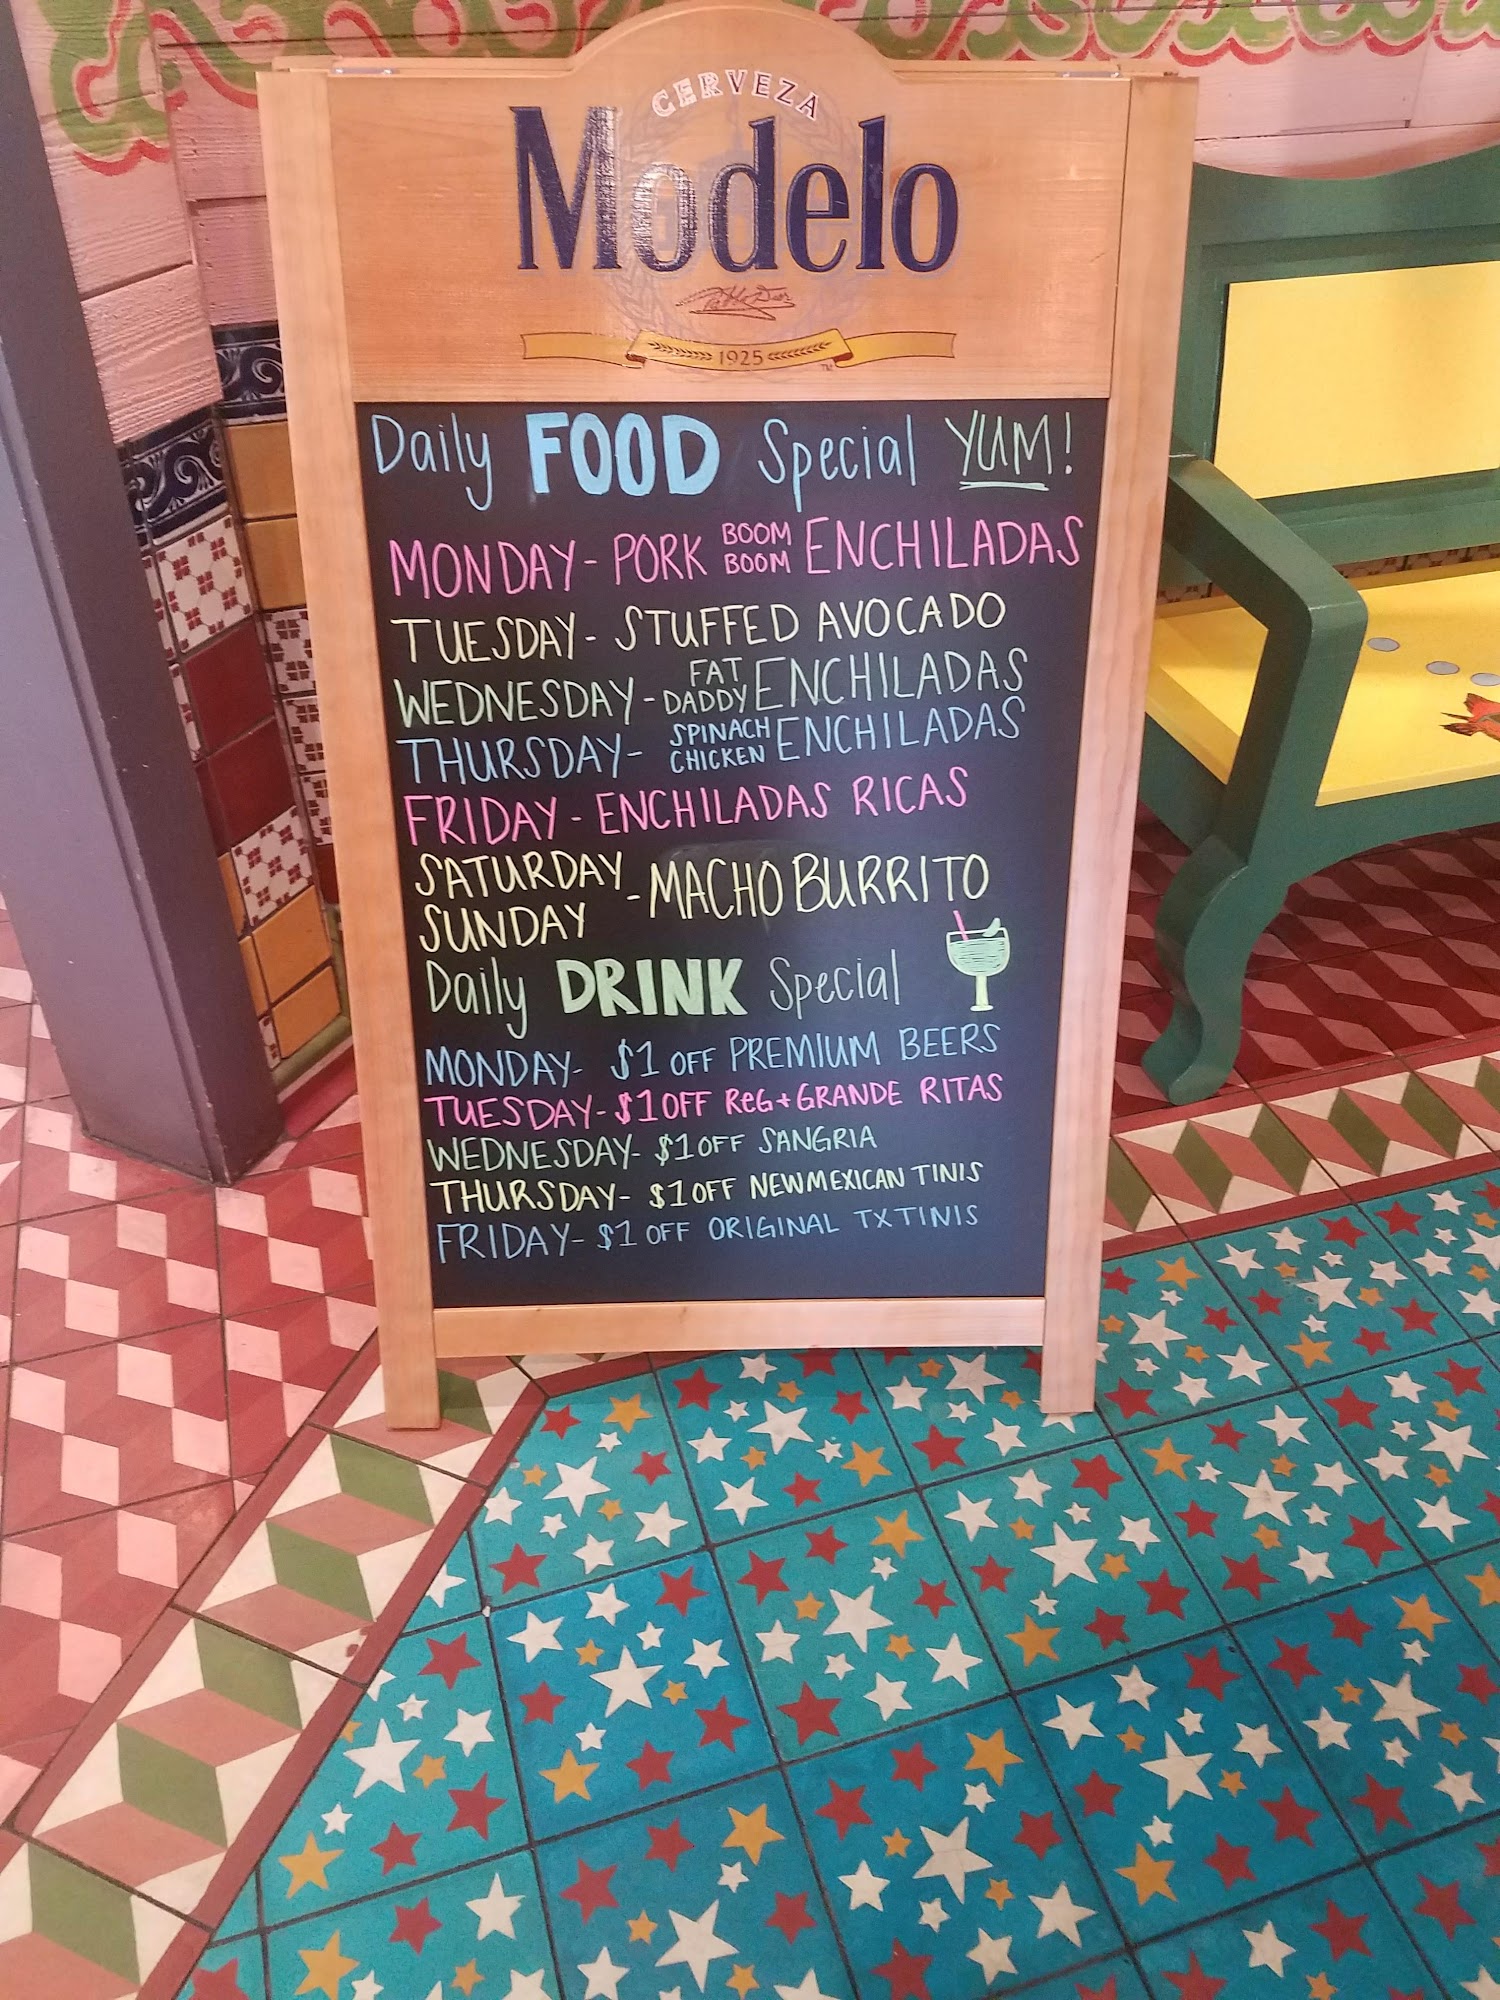 CERVEZA
Modelo
1925
TM
Daily FOOD Special YUM!
MONDAY - PORK BOOM BOOM ENCHILADAS
TUESDAY - STUFFED AVOCADO
WEDNESDAY - FAT DADDY ENCHILADAS
THURSDAY - SPINACH CHICKEN ENCHILADAS
FRIDAY - ENCHILADAS RICAS
SATURDAY
SUNDAY - MACHO BURRITO
Daily DRINK Special
MONDAY - $1 OFF PREMIUM BEERS
TUESDAY - $1 OFF REG + GRANDE RITAS
WEDNESDAY - $1 OFF SANGRIA
THURSDAY - $1 OFF NEW MEXICAN TINIS
FRIDAY - $1 OFF ORIGINAL TXTINIS